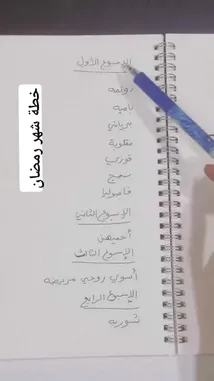 خطة شهر رمضان
الإسبوع الأول
دولمه
باميه
برياني
مقلوبة
قوزي
سمج
فاصوليا
الإسبوع الثاني
أحميهن
الإسبوع الثالث
أسوي روحي مريضه
الإسبوع الرابع
شوربه